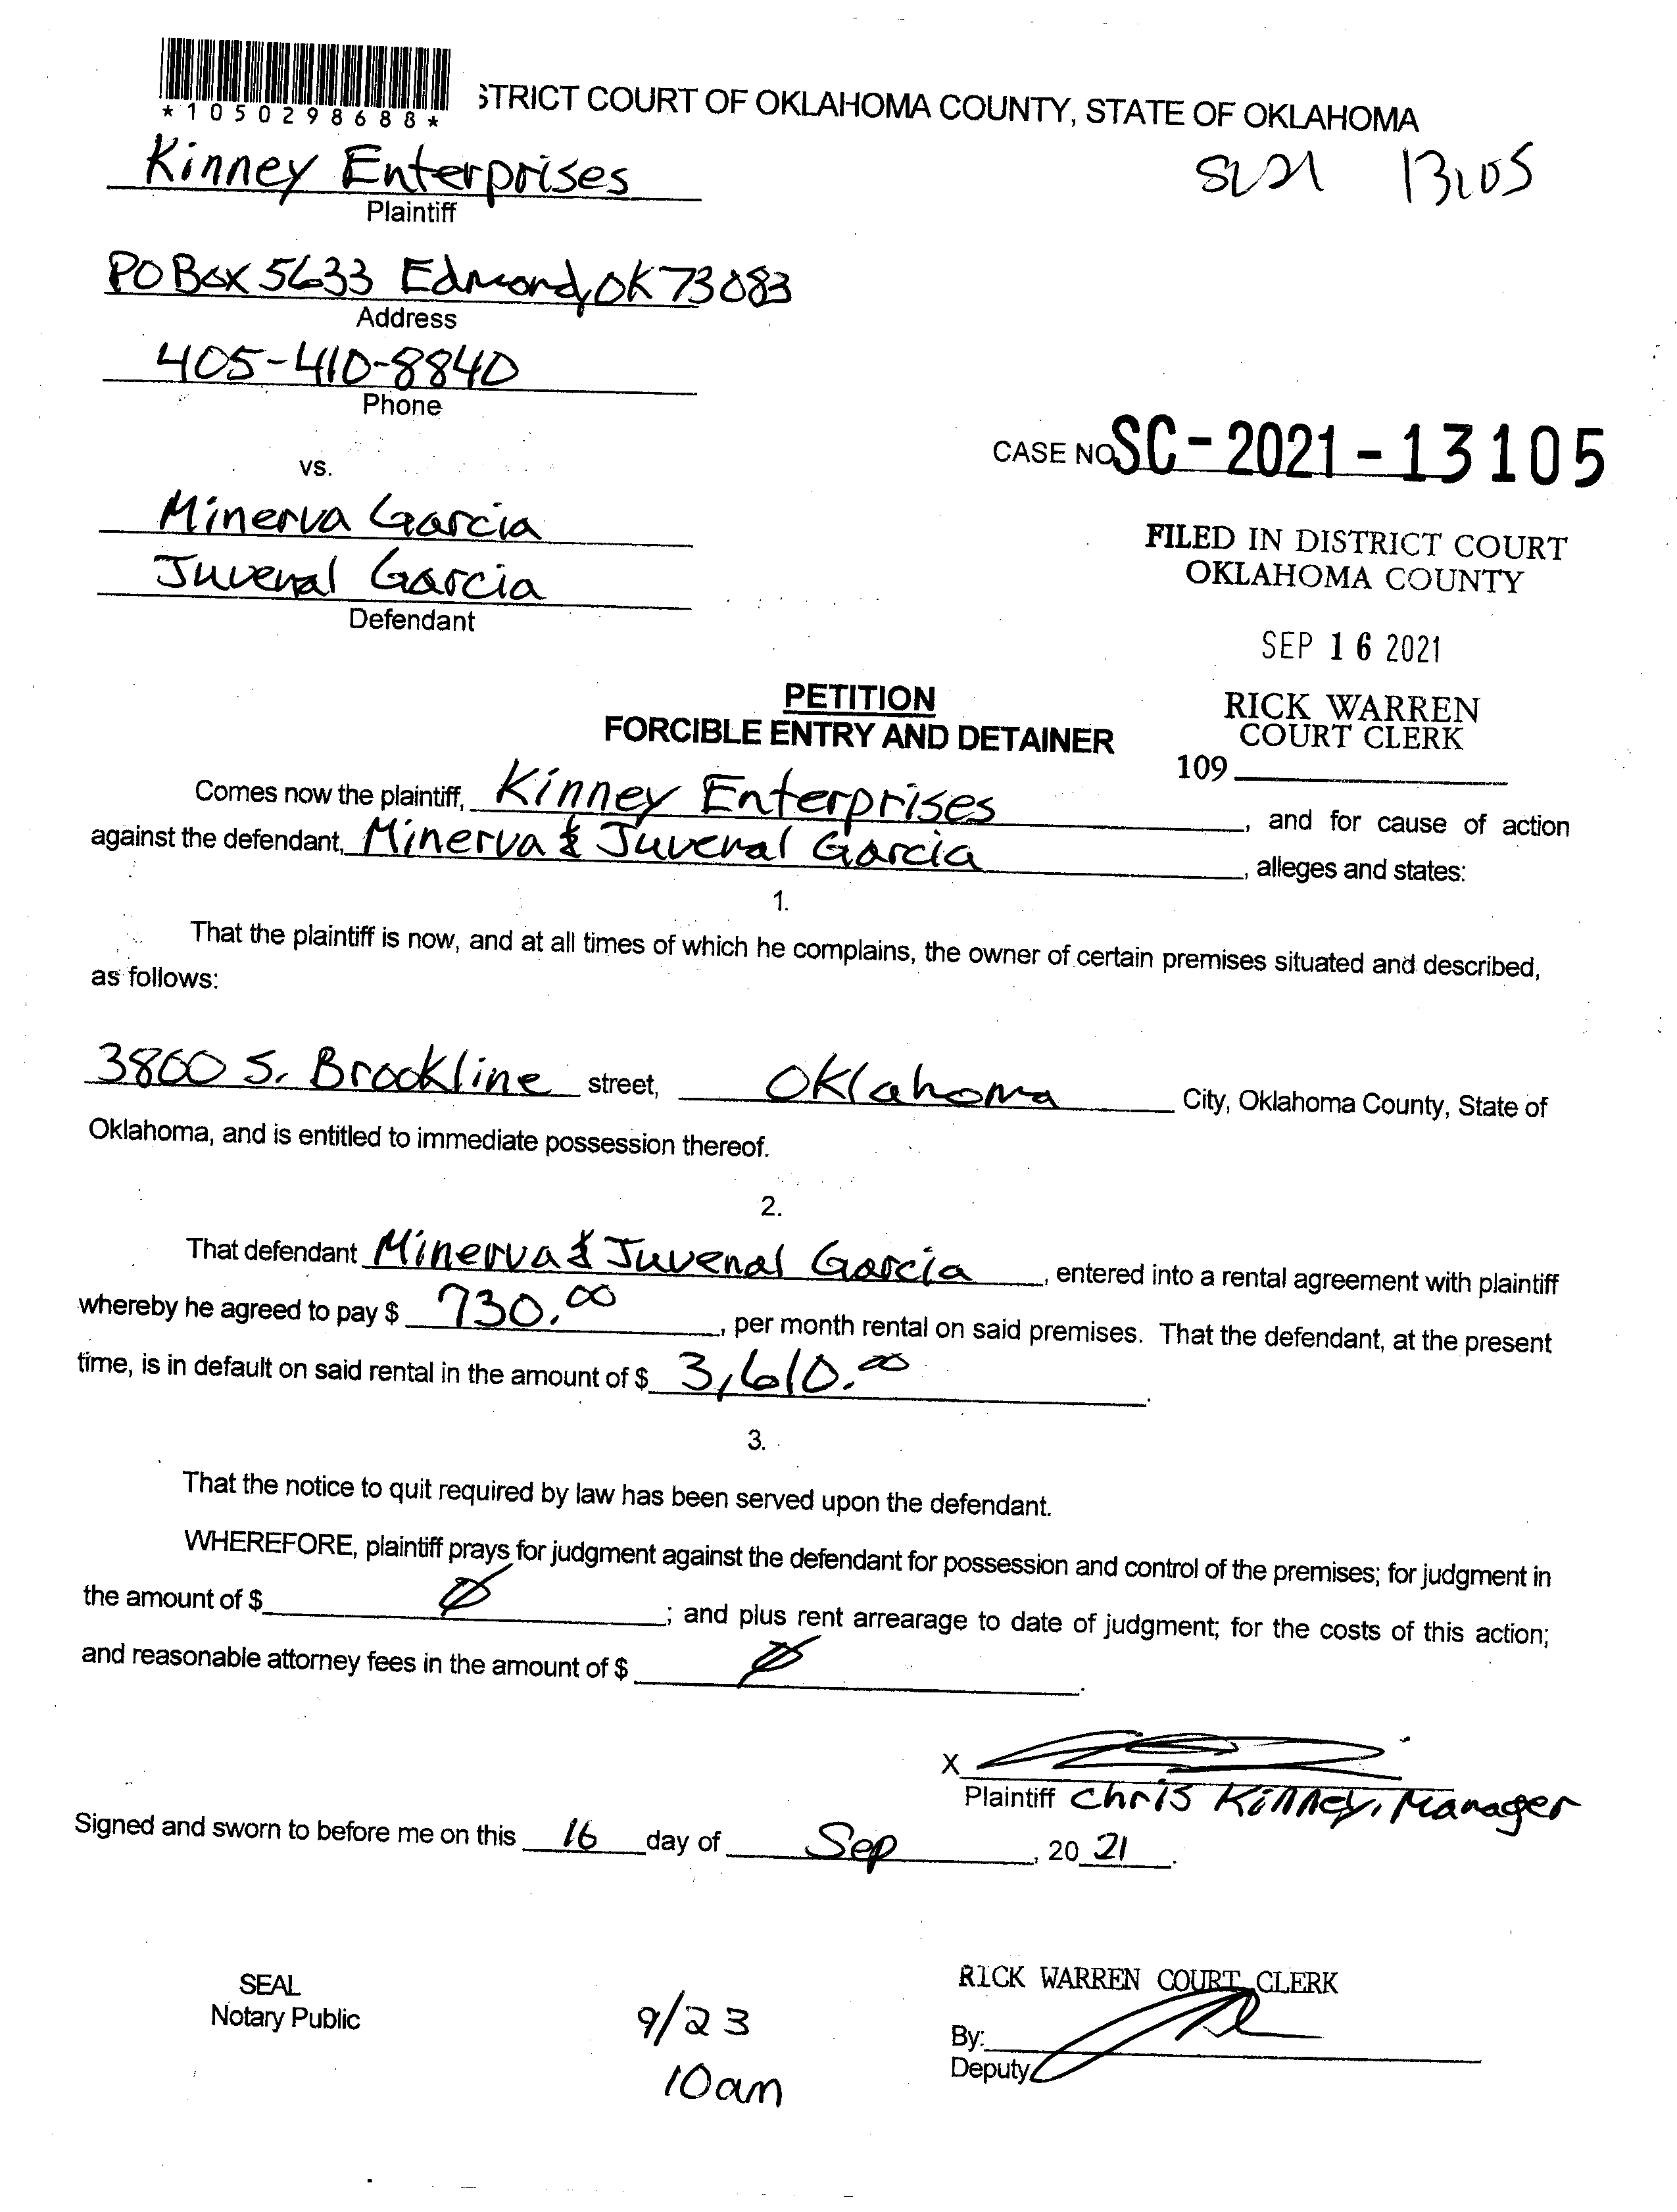 *1050298688*
STRICT COURT OF OKLAHOMA COUNTY, STATE OF OKLAHOMA
Kinney Enterprises
Plaintiff
13105
PO Box 5633 Edmond, OK 73083
Address
405-410-8840
Phone
CASE NO. SC-2021-13105
vs.
Minerva Garcia
Juvenal Garcia
Defendant
FILED IN DISTRICT COURT
OKLAHOMA COUNTY
SEP 16 2021
RICK WARREN
COURT CLERK
109
PETITION
FORCIBLE ENTRY AND DETAINER
Comes now the plaintiff, Kinney Enterprises, and for cause of action
against the defendant, Minerva & Juvenal Garcia, alleges and states:
1.
That the plaintiff is now, and at all times of which he complains, the owner of certain premises situated and described,
as follows:
3860 S. Brookline street, Oklahoma City, Oklahoma County, State of
Oklahoma, and is entitled to immediate possession thereof.
2.
That defendant Minerva & Juvenal Garcia, entered into a rental agreement with plaintiff
whereby he agreed to pay $ 730.00, per month rental on said premises. That the defendant, at the present
time, is in default on said rental in the amount of $ 3,610.00.
3.
That the notice to quit required by law has been served upon the defendant.
WHEREFORE, plaintiff prays for judgment against the defendant for possession and control of the premises; for judgment in
the amount of $ Ø; and plus rent arrearage to date of judgment; for the costs of this action;
and reasonable attorney fees in the amount of $ Ø.
X
Plaintiff Chris Kinney, Manager
Signed and sworn to before me on this 16 day of Sep, 2021.
SEAL
Notary Public
9/23
10am
RICK WARREN COURT CLERK
By:
Deputy